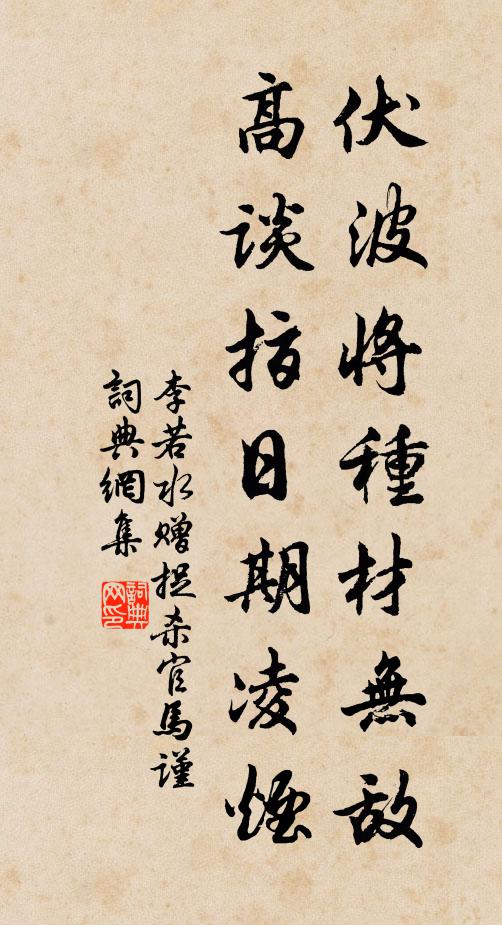 伏波將種材無敵
高談指日期凌煙
李若水贈捉杀官馬谨
詞典網集
詞典
网印